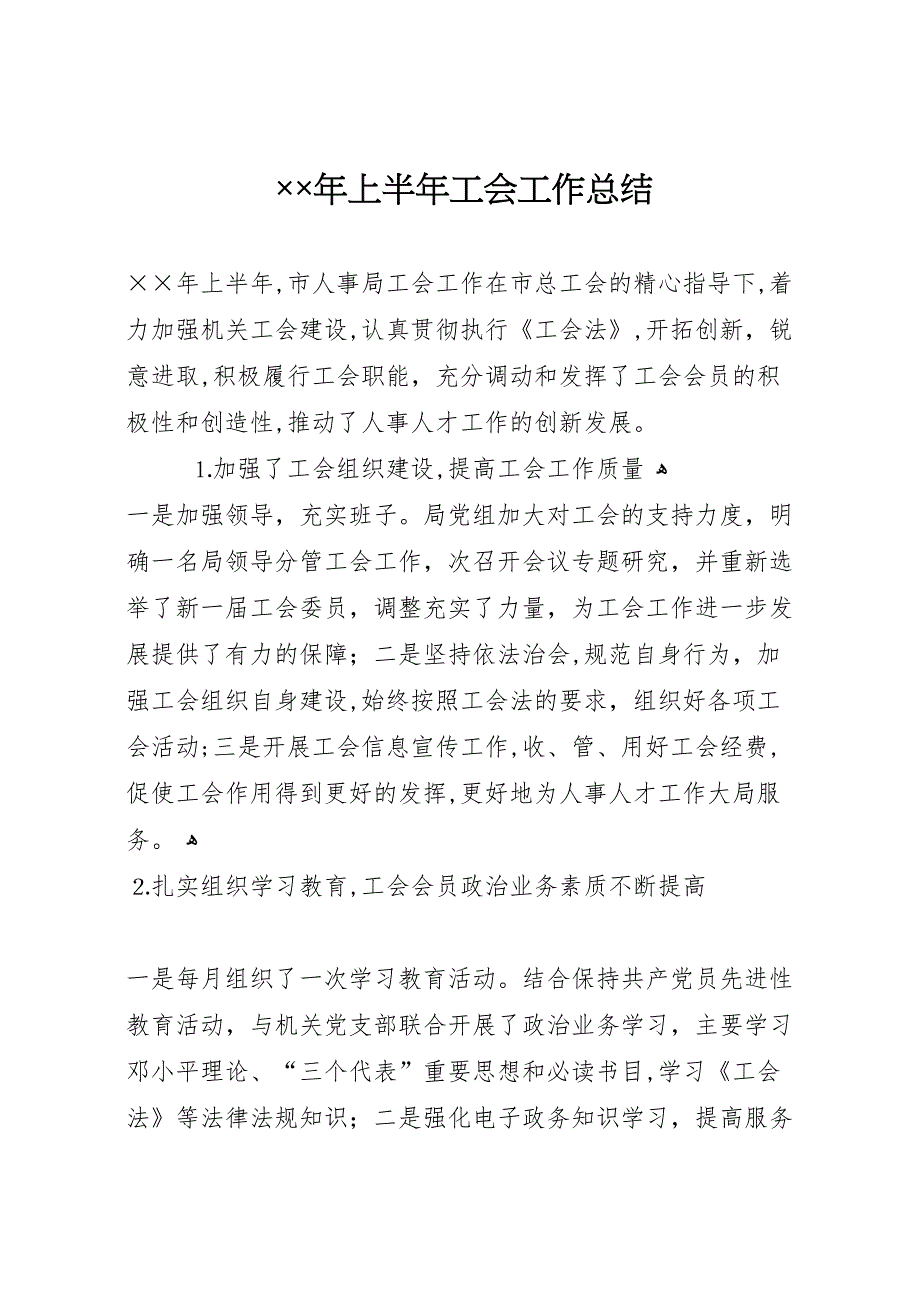 ××年上半年工会工作总结
××年上半年,市人事局工会工作在市总工会的精心指导下,着
力加强机关工会建设,认真贯彻执行《工会法》,开拓创新，锐
意进取,积极履行工会职能，充分调动和发挥了工会会员的积
极性和创造性,推动了人事人才工作的创新发展。
1.加强了工会组织建设,提高工会工作质量 ﻫ
一是加强领导，充实班子。局党组加大对工会的支持力度，明
确一名局领导分管工会工作，次召开会议专题研究，并重新选
举了新一届工会委员，调整充实了力量，为工会工作进一步发
展提供了有力的保障；二是坚持依法治会,规范自身行为，加
强工会组织自身建设,始终按照工会法的要求，组织好各项工
会活动;三是开展工会信息宣传工作,收、管、用好工会经费,
促使工会作用得到更好的发挥,更好地为人事人才工作大局服
务。 ﻫ
2.扎实组织学习教育,工会会员政治业务素质不断提高
一是每月组织了一次学习教育活动。结合保持共产党员先进性
教育活动，与机关党支部联合开展了政治业务学习，主要学习
邓小平理论、“三个代表”重要思想和必读书目,学习《工会
法》等法律法规知识；二是强化电子政务知识学习，提高服务